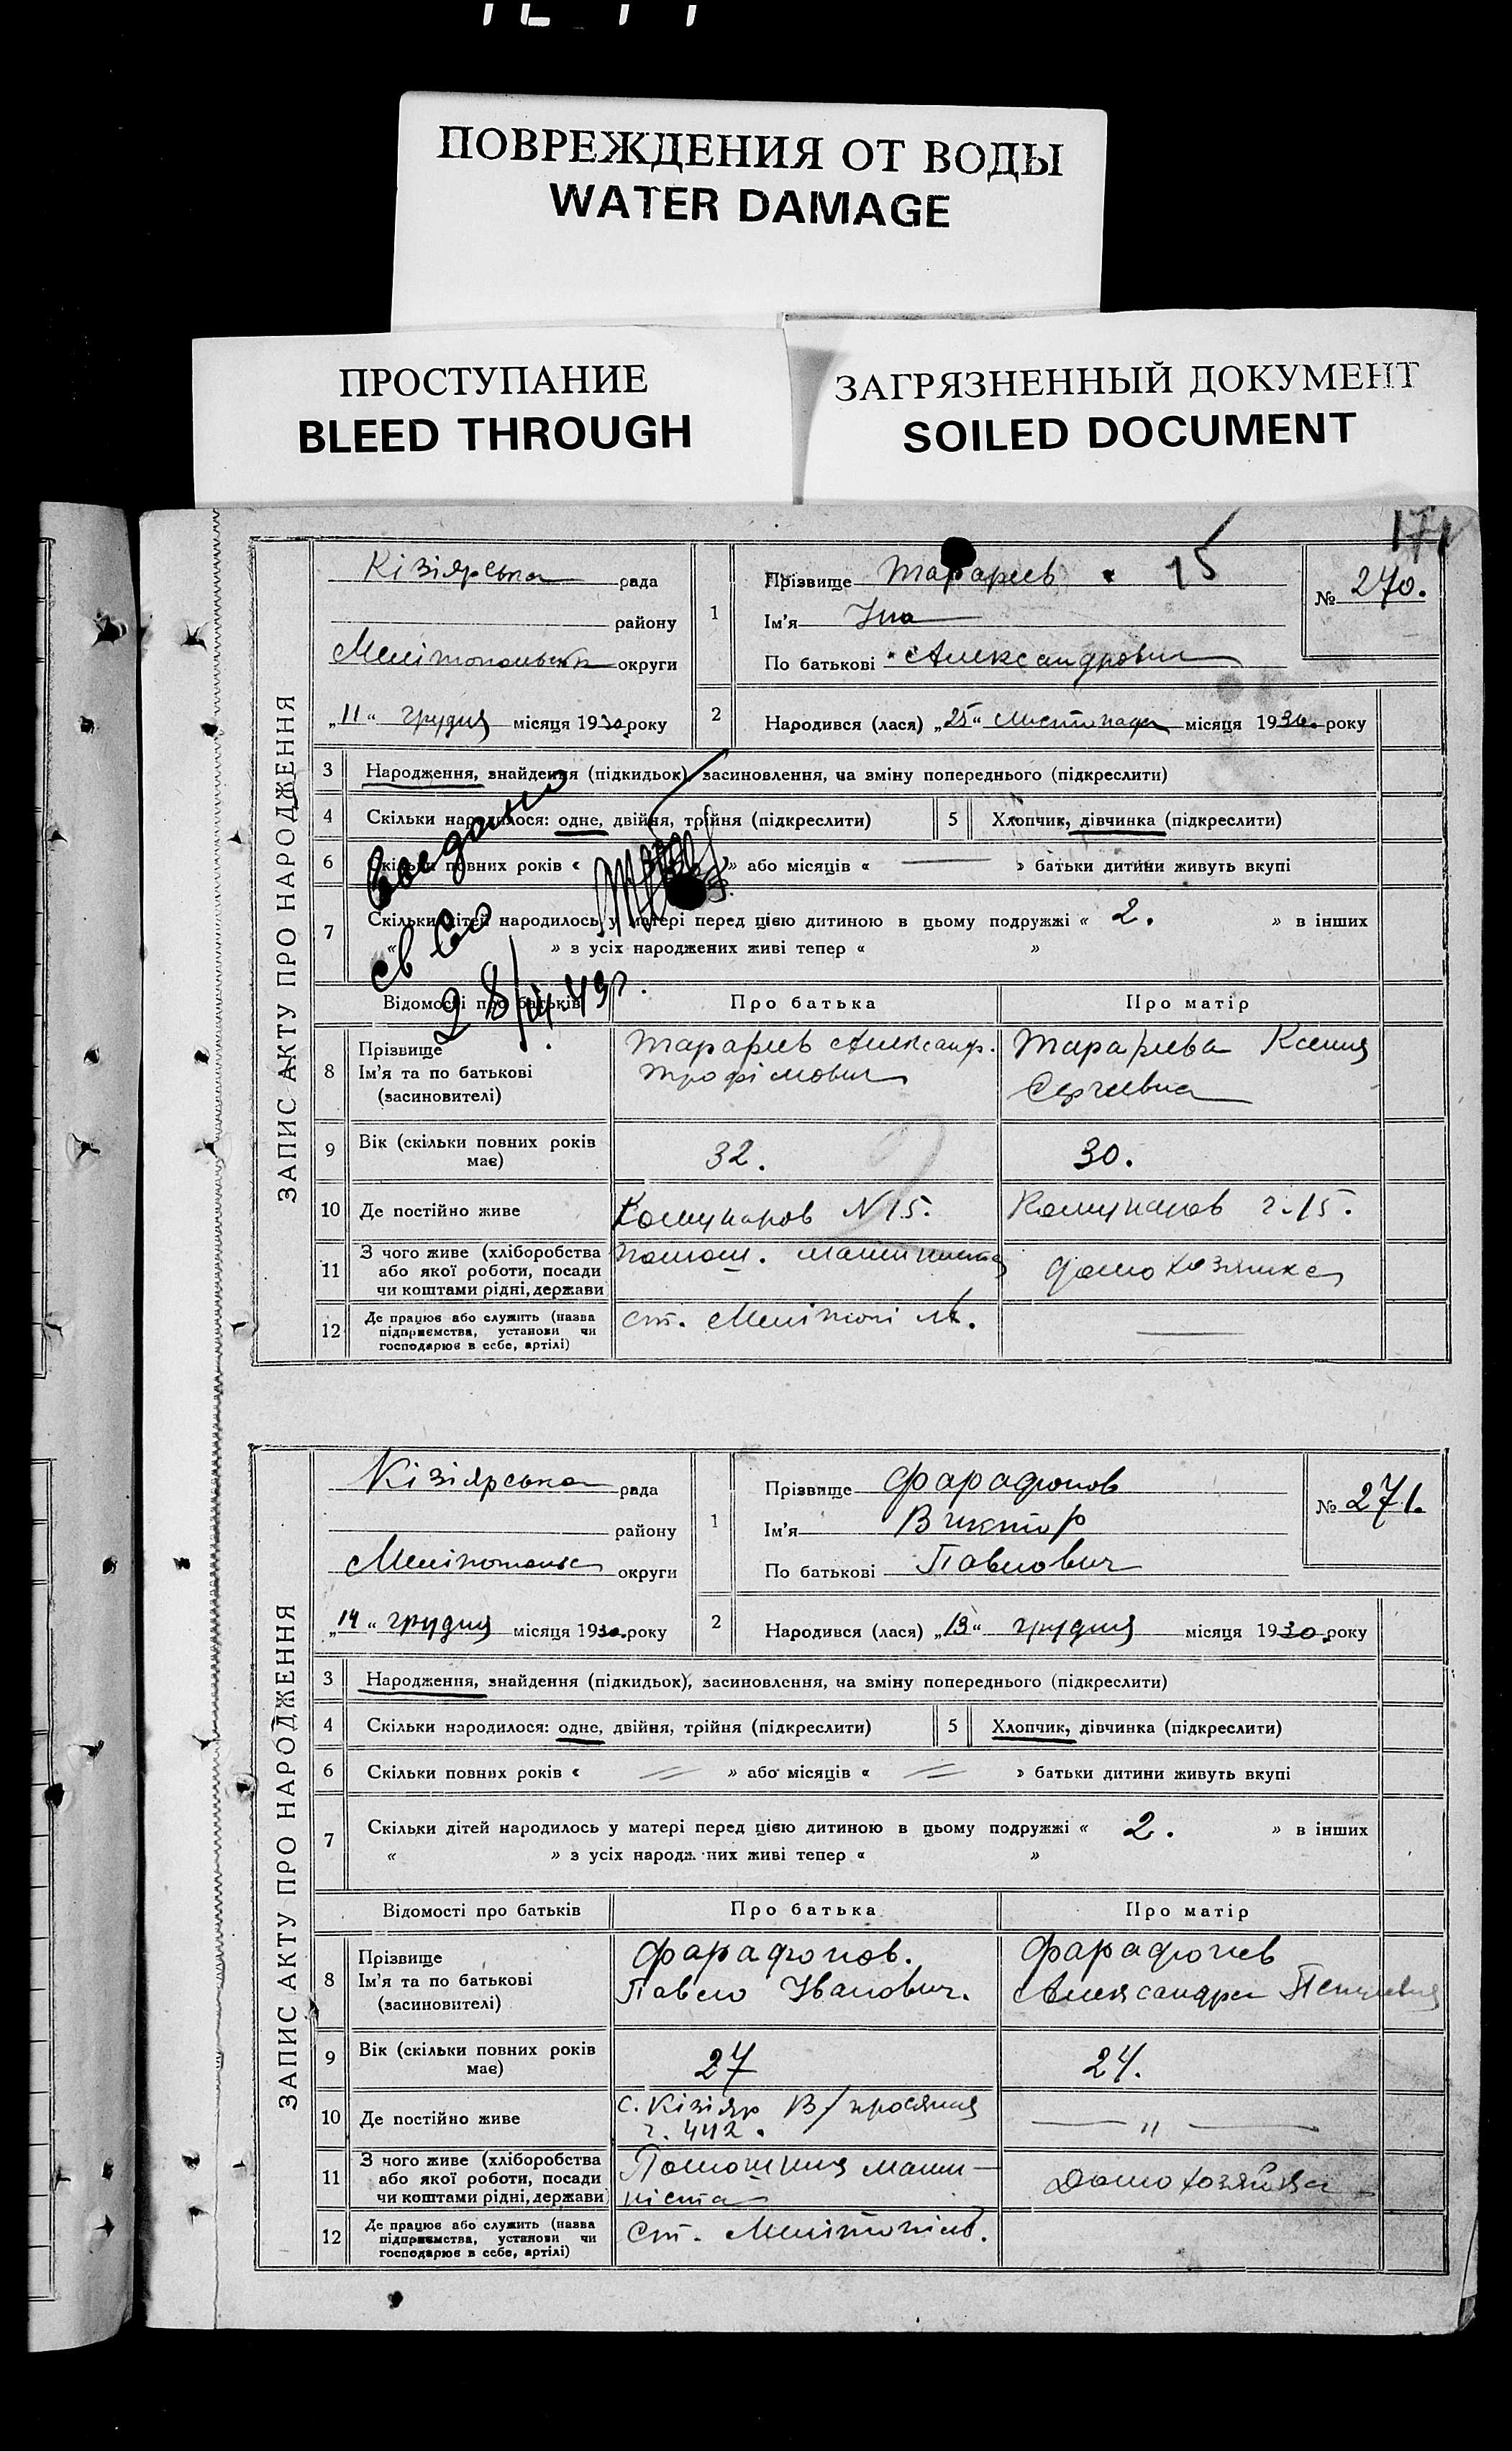 ПОВРЕЖДЕНИЯ ОТ ВОДЫ
WATER DAMAGE
ПРОСТУПАНИЕ
BLEED THROUGH
ЗАГРЯЗНЕННЫЙ ДОКУМЕНТ
SOILED DOCUMENT
171
ЗАПИС АКТУ ПРО НАРОДЖЕННЯ
Кізіярська рада
району
округи
„11“ грудня місяця 1930 року
1
Прізвище Тарариев 15
Ім'я Іна
По батькові Александровн
№ 270.
2 Народився (лася) „25“ листопада місяця 1930 року
3 Народження, знайдення (підкидьок), засиновлення, на зміну попереднього (підкреслити)
4 Скільки народилося: одне, двійня, трійня (підкреслити) 5 Хлопчик, дівчинка (підкреслити)
6 Скільки повних років « » або місяців « » батьки дитини живуть вкупі
7 Скільки дітей народилось у матері перед цією дитиною в цьому подружжі « 2. » в інших
« » з усіх народжених живі тепер « »
св во
28/III.49г.
Відомості про батьків Про батька Про матір
8 Прізвище
Ім'я та по батькові
(засиновителі)
Тарариев Александр.
Трофімович
Тарариева Ксения
Сергиевна
9 Вік (скільки повних років має) 32. 30.
10 Де постійно живе Комунаров N 15. Комунаров ч. 15.
11 З чого живе (хліборобства
або якої роботи, посади
чи коштами рідні, держави
помош. машиниста
домохозяйка
12 Де працює або служить (назва
підприємства, установи чи
господарює в себе, артілі)
ст. Мелітопіль.
ЗАПИС АКТУ ПРО НАРОДЖЕННЯ
Кізіярська рада
району
округи
„14“ грудня місяця 1930 року
1
Прізвище Фарафонов
Ім'я Виктор
По батькові Павлович
№ 271.
2 Народився (лася) „13“ грудня місяця 1930 року
3 Народження, знайдення (підкидьок), засиновлення, на зміну попереднього (підкреслити)
4 Скільки народилося: одне, двійня, трійня (підкреслити) 5 Хлопчик, дівчинка (підкреслити)
6 Скільки повних років « » або місяців « » батьки дитини живуть вкупі
7 Скільки дітей народилось у матері перед цією дитиною в цьому подружжі « 2. » в інших
« » з усіх народж них живі тепер « »
Відомості про батьків Про батька Про матір
8 Прізвище
Ім'я та по батькові
(засиновителі)
Фарафонов.
Павло Іванович.
Фарафонов
Александра
9 Вік (скільки повних років має) 27 24.
10 Де постійно живе
с. Кізіяр
ч. 442.
— " —
11 З чого живе (хліборобства
або якої роботи, посади
чи коштами рідні, держави
Помошник маши-
ніста
Домохозяйка
12 Де працює або служить (назва
підприємства, установи чи
господарює в себе, артілі)
Ст. Мелітопіль.